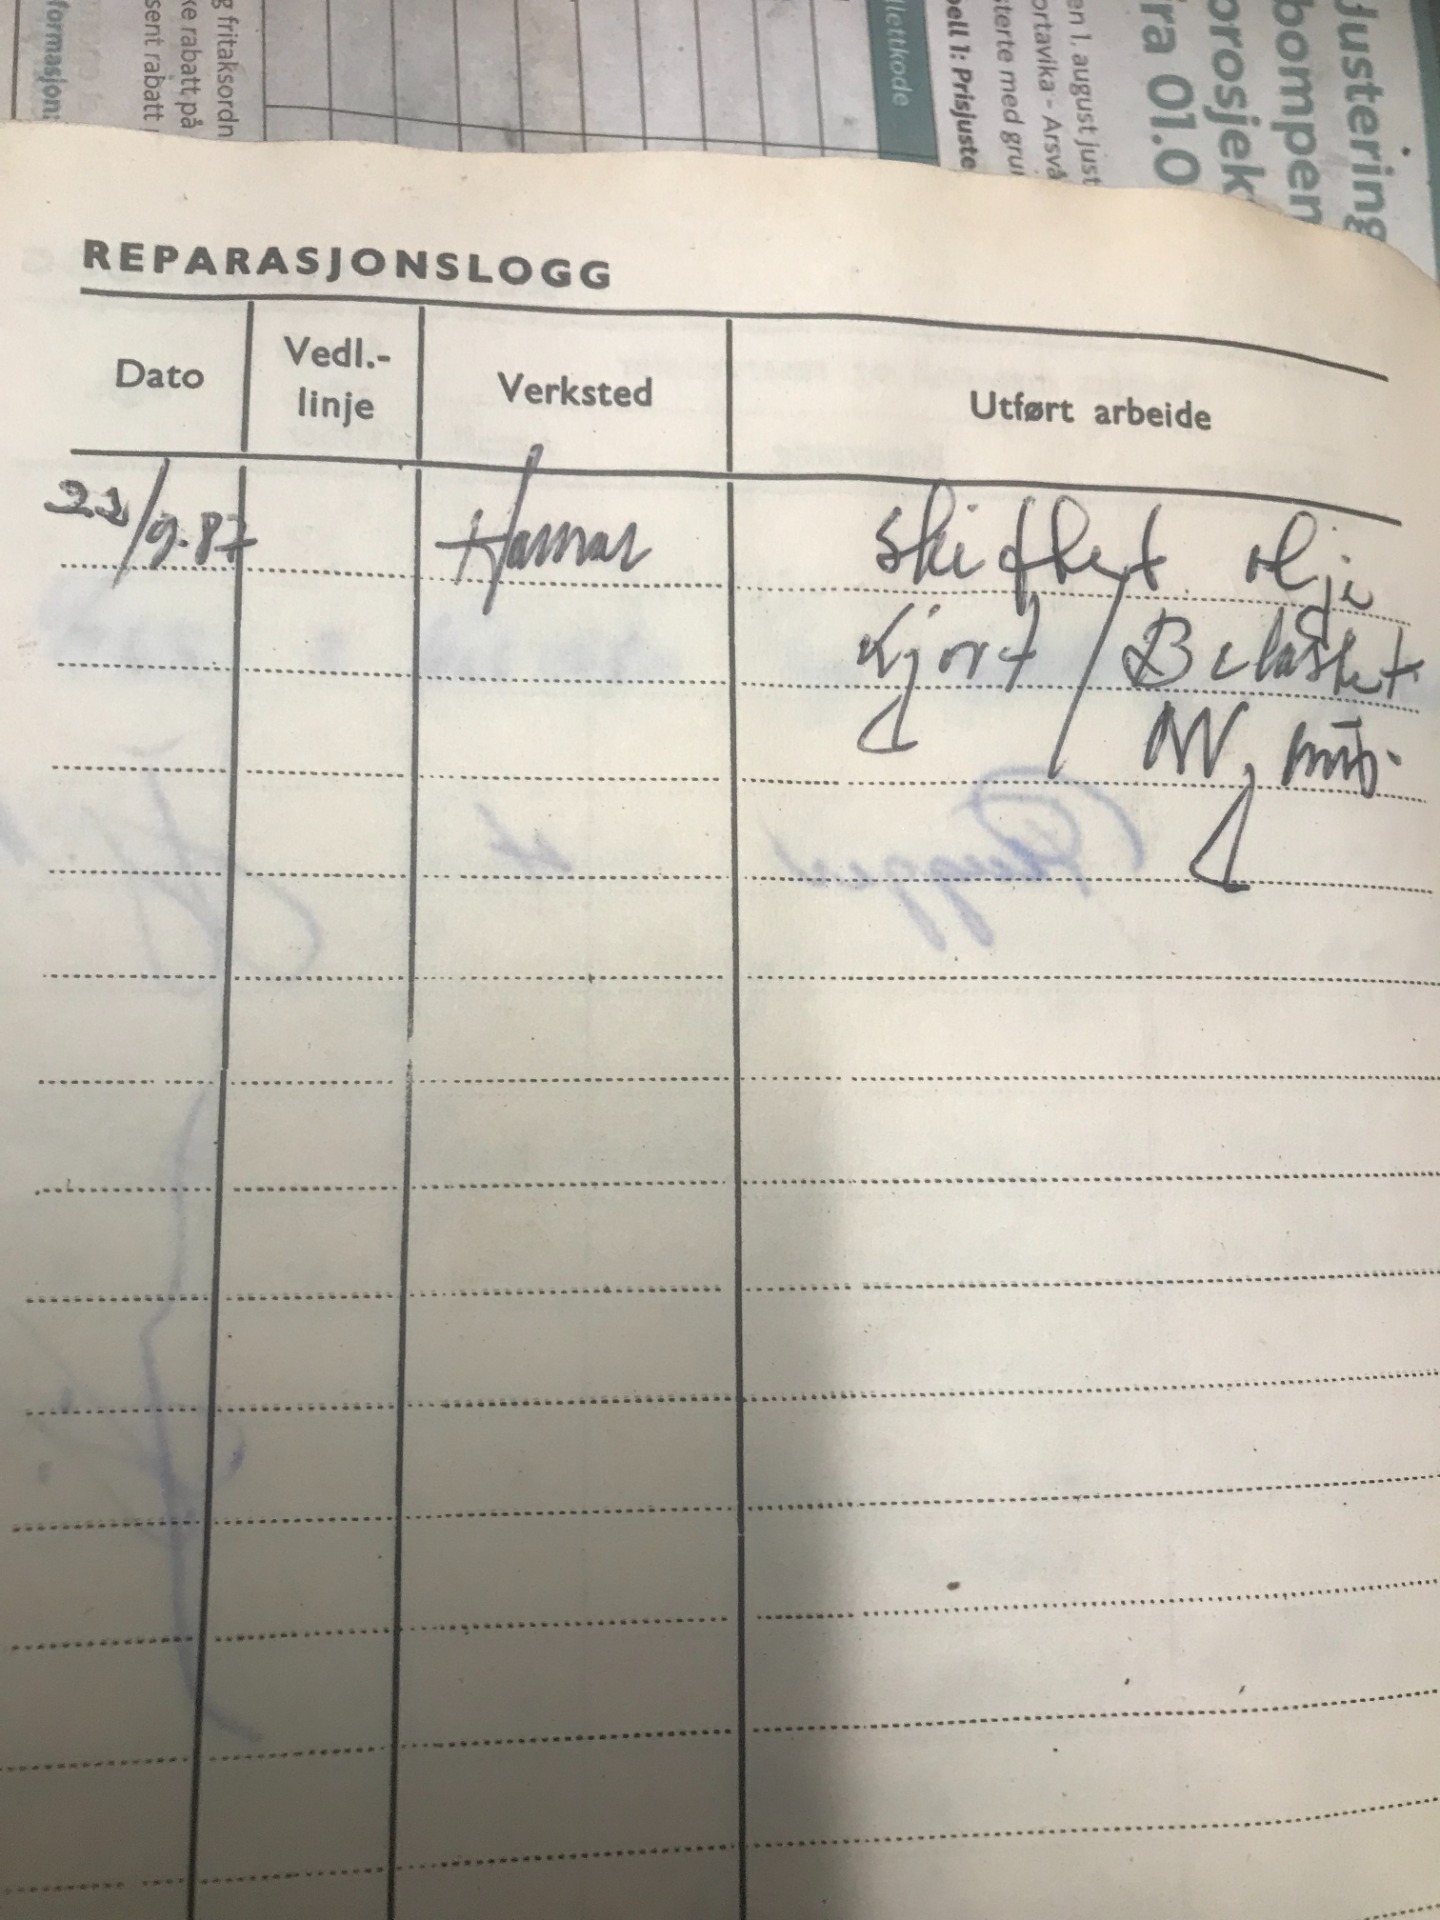 g fritaksordn
ke rabatt på
sent rabatt
formasjon:
lettkode
Justering
bompen
prosjek
ra 01.0
en 1. august just
ortavika - Arsvå
sterte med grui
bell 1: Prisjuste
REPARASJONSLOGG
Dato Vedl.-linje Verksted Utført arbeide
22/9.87 Hamar Skiftet olje
Kjørt / Belastet